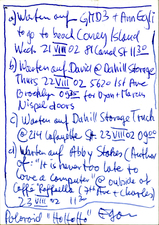 a) Warten auf GMD3 + Ann Eyi
to go to beach Coney Island
Wed 21 VIII 02 8th Canal St 11 30
b) Warten auf David @ Dahill Storage
Thurs 22/VIII 02 5620 1st Ave
Brooklyn 09 for Dyon + Marcus
Nispel doors
c) Warten auf Dahill Storage Truck
@ 214 Lafayette St. 23 VIII 02 09
d) Warten auf Abby Stokes (Author
of: "It is never too late to
love a computer" @ outside of
Caffè Raffaella (7th Ave + Charles)
23 VIII 02 11
Polaroid "HoHoHo"